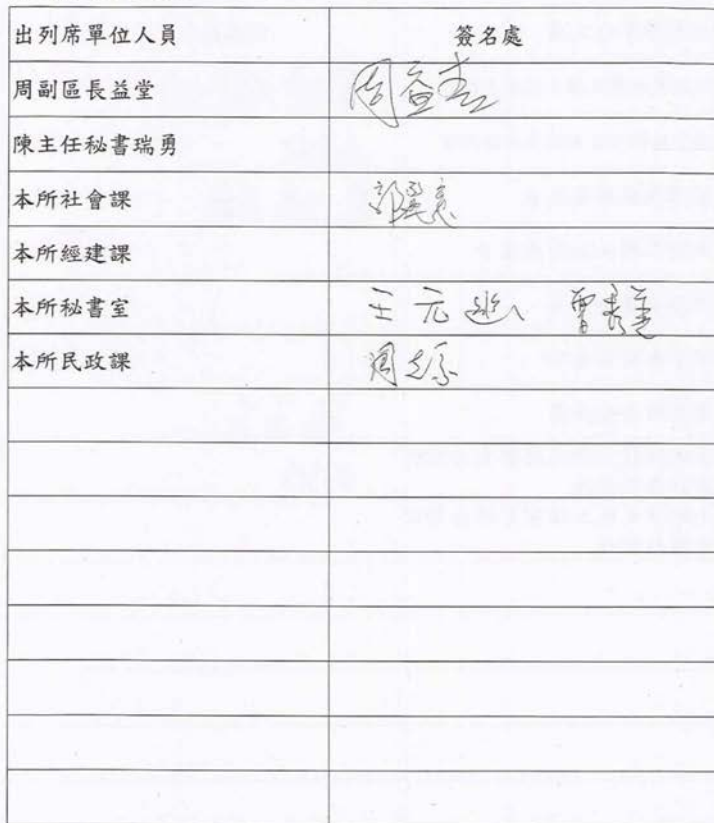 出列席單位人員 簽名處
周副區長益堂 周益堂
陳主任秘書瑞勇
本所社會課
本所經建課
本所秘書室 王元
本所民政課 周